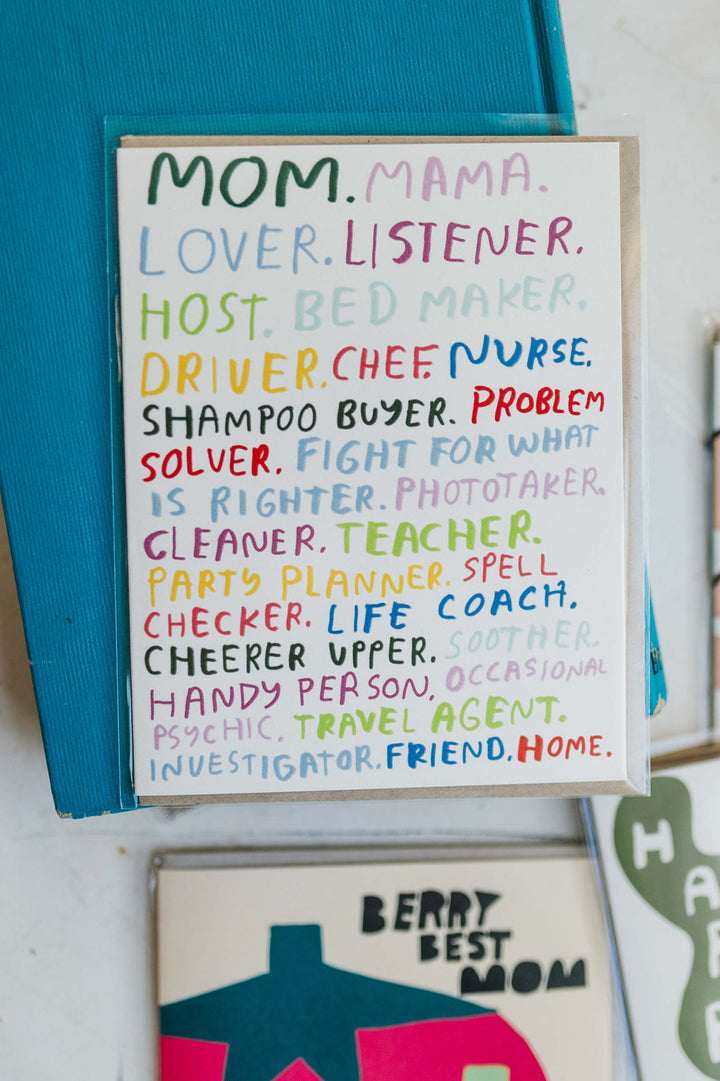 MOM. MAMA.
LOVER. LISTENER.
HOST. BED MAKER.
DRIVER. CHEF. NURSE.
SHAMPOO BUYER. PROBLEM
SOLVER. FIGHT FOR WHAT
IS RIGHTER. PHOTOTAKER.
CLEANER. TEACHER.
PARTY PLANNER. SPELL
CHECKER. LIFE COACH.
CHEERER UPPER. SOOTHER.
HANDY PERSON. OCCASIONAL
PSYCHIC. TRAVEL AGENT.
INVESTIGATOR. FRIEND. HOME.
BERRY
BEST
MOM
H
A